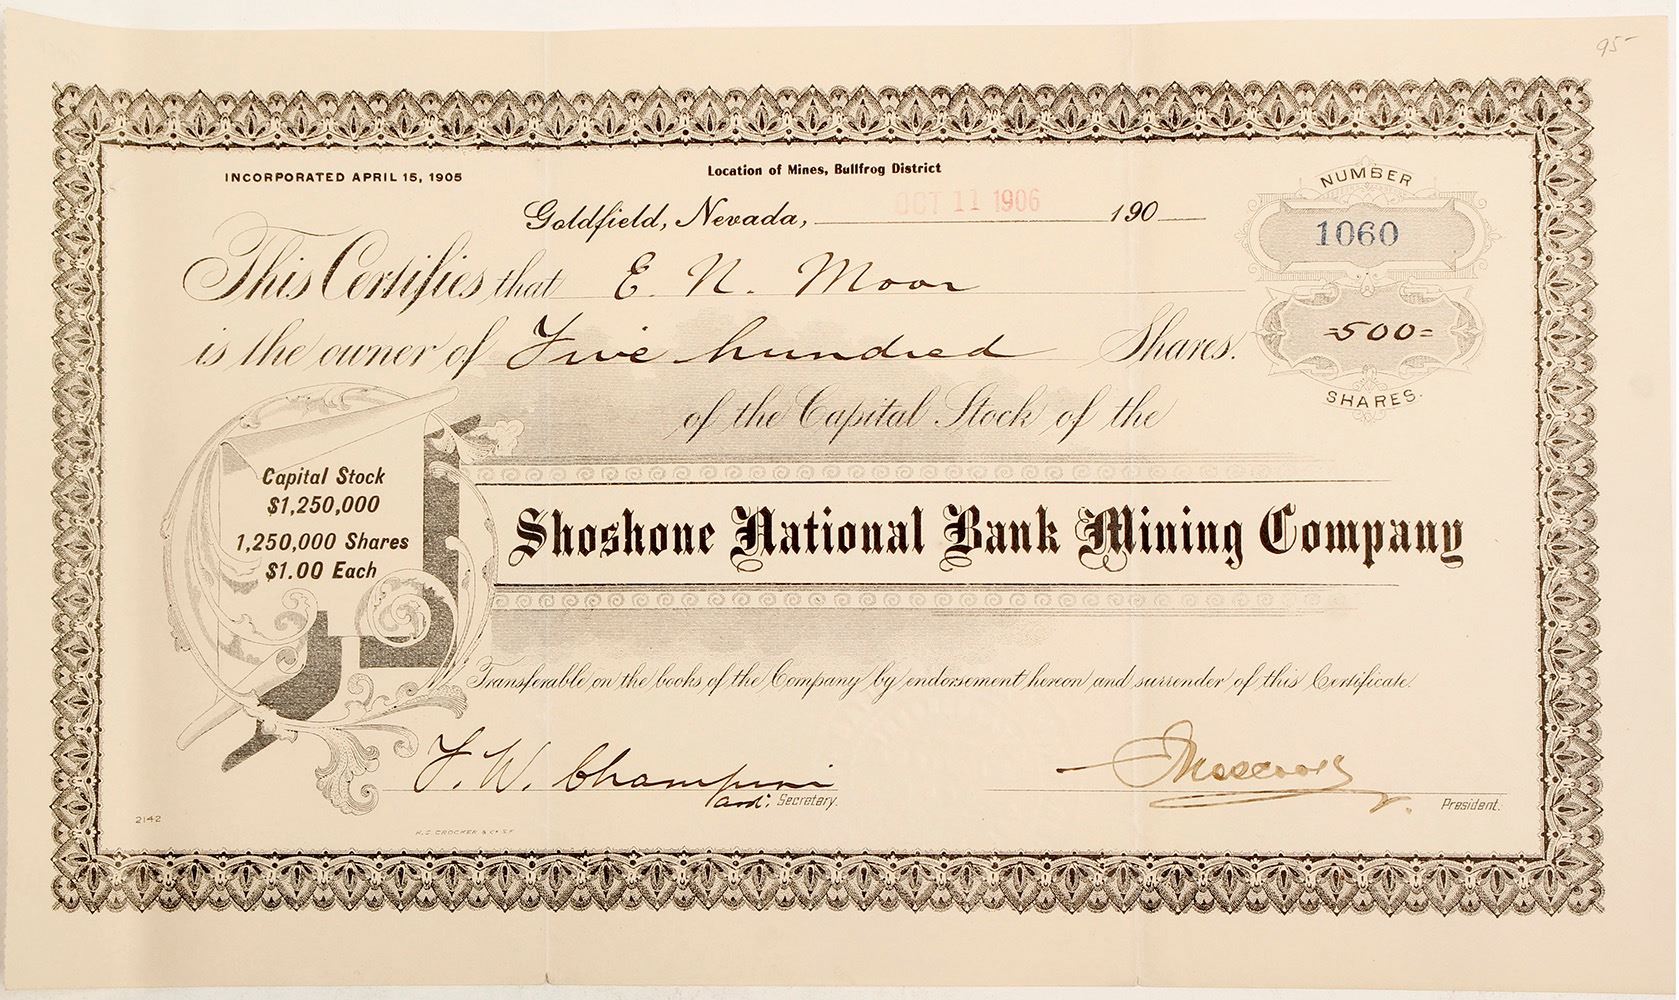 95-
INCORPORATED APRIL 15, 1905
Location of Mines, Bullfrog District
Goldfield, Nevada, OCT 11 1906 190
NUMBER
1060
This Certifies that E. N. Moor
is the owner of Five hundred Shares.
=500=
SHARES.
of the Capital Stock of the
Capital Stock
$1,250,000
1,250,000 Shares
$1.00 Each
Shoshone National Bank Mining Company
Transferable on the books of the Company by endorsement hereon and surrender of this Certificate.
J. W. Champion
Secretary.
President.
2142
H.S. CROCKER & CO. S.F.